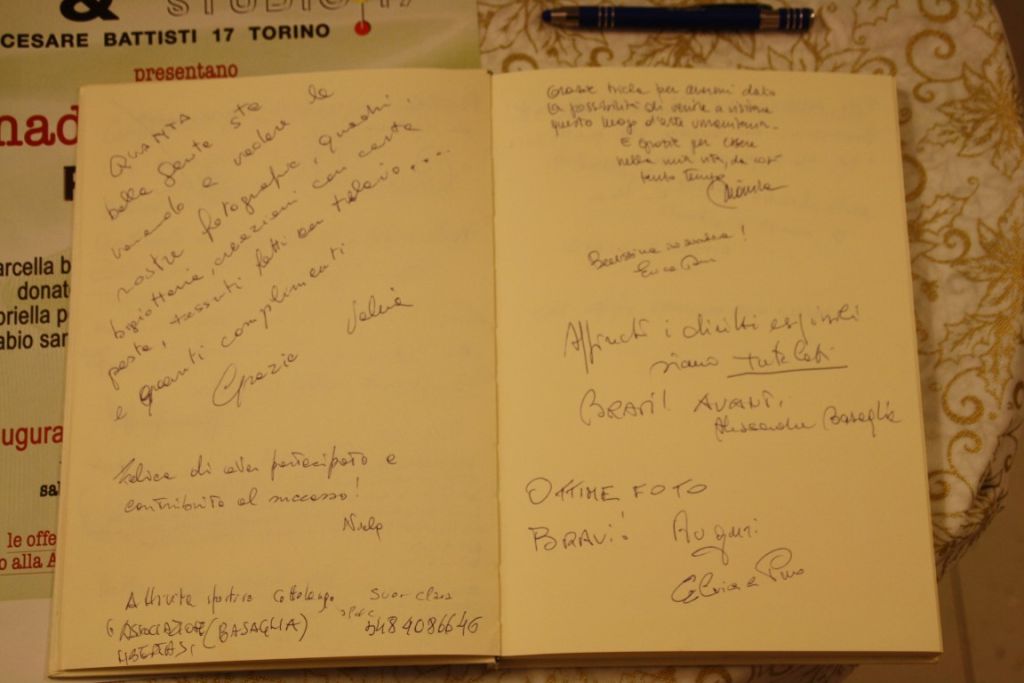 & STUDIO 17
CESARE BATTISTI 17 TORINO
presentano
nad
arcella b
donat
oriella p
abio sar
ugura
sal
le offe
o alla A
QUANTA
bella gente sta
venendo a vedere le
nostre fotografie, quadri,
bigiotteria, creazioni con carta
pesta, tessuti fatti con telaio....
e quanti complimenti
Grazie Valeria
Felice di aver partecipato e
contribuito al successo!
Attività sportiva Cottolengo Suor Clara
ASSOCIAZIONE (BASAGLIA) 348 4086646
Grazie per avermi dato
la possibilità di venire a visitare
questo luogo d'arte
e grazie per essere
nella mia vita, da così
tanto tempo
Bellissima !
Affinché i diritti esigibili
siano tutelati
BRAVI! AVANTI.
Alessandra Basaglia
OTTIME FOTO
BRAVI! Auguri
Elvia e Pino